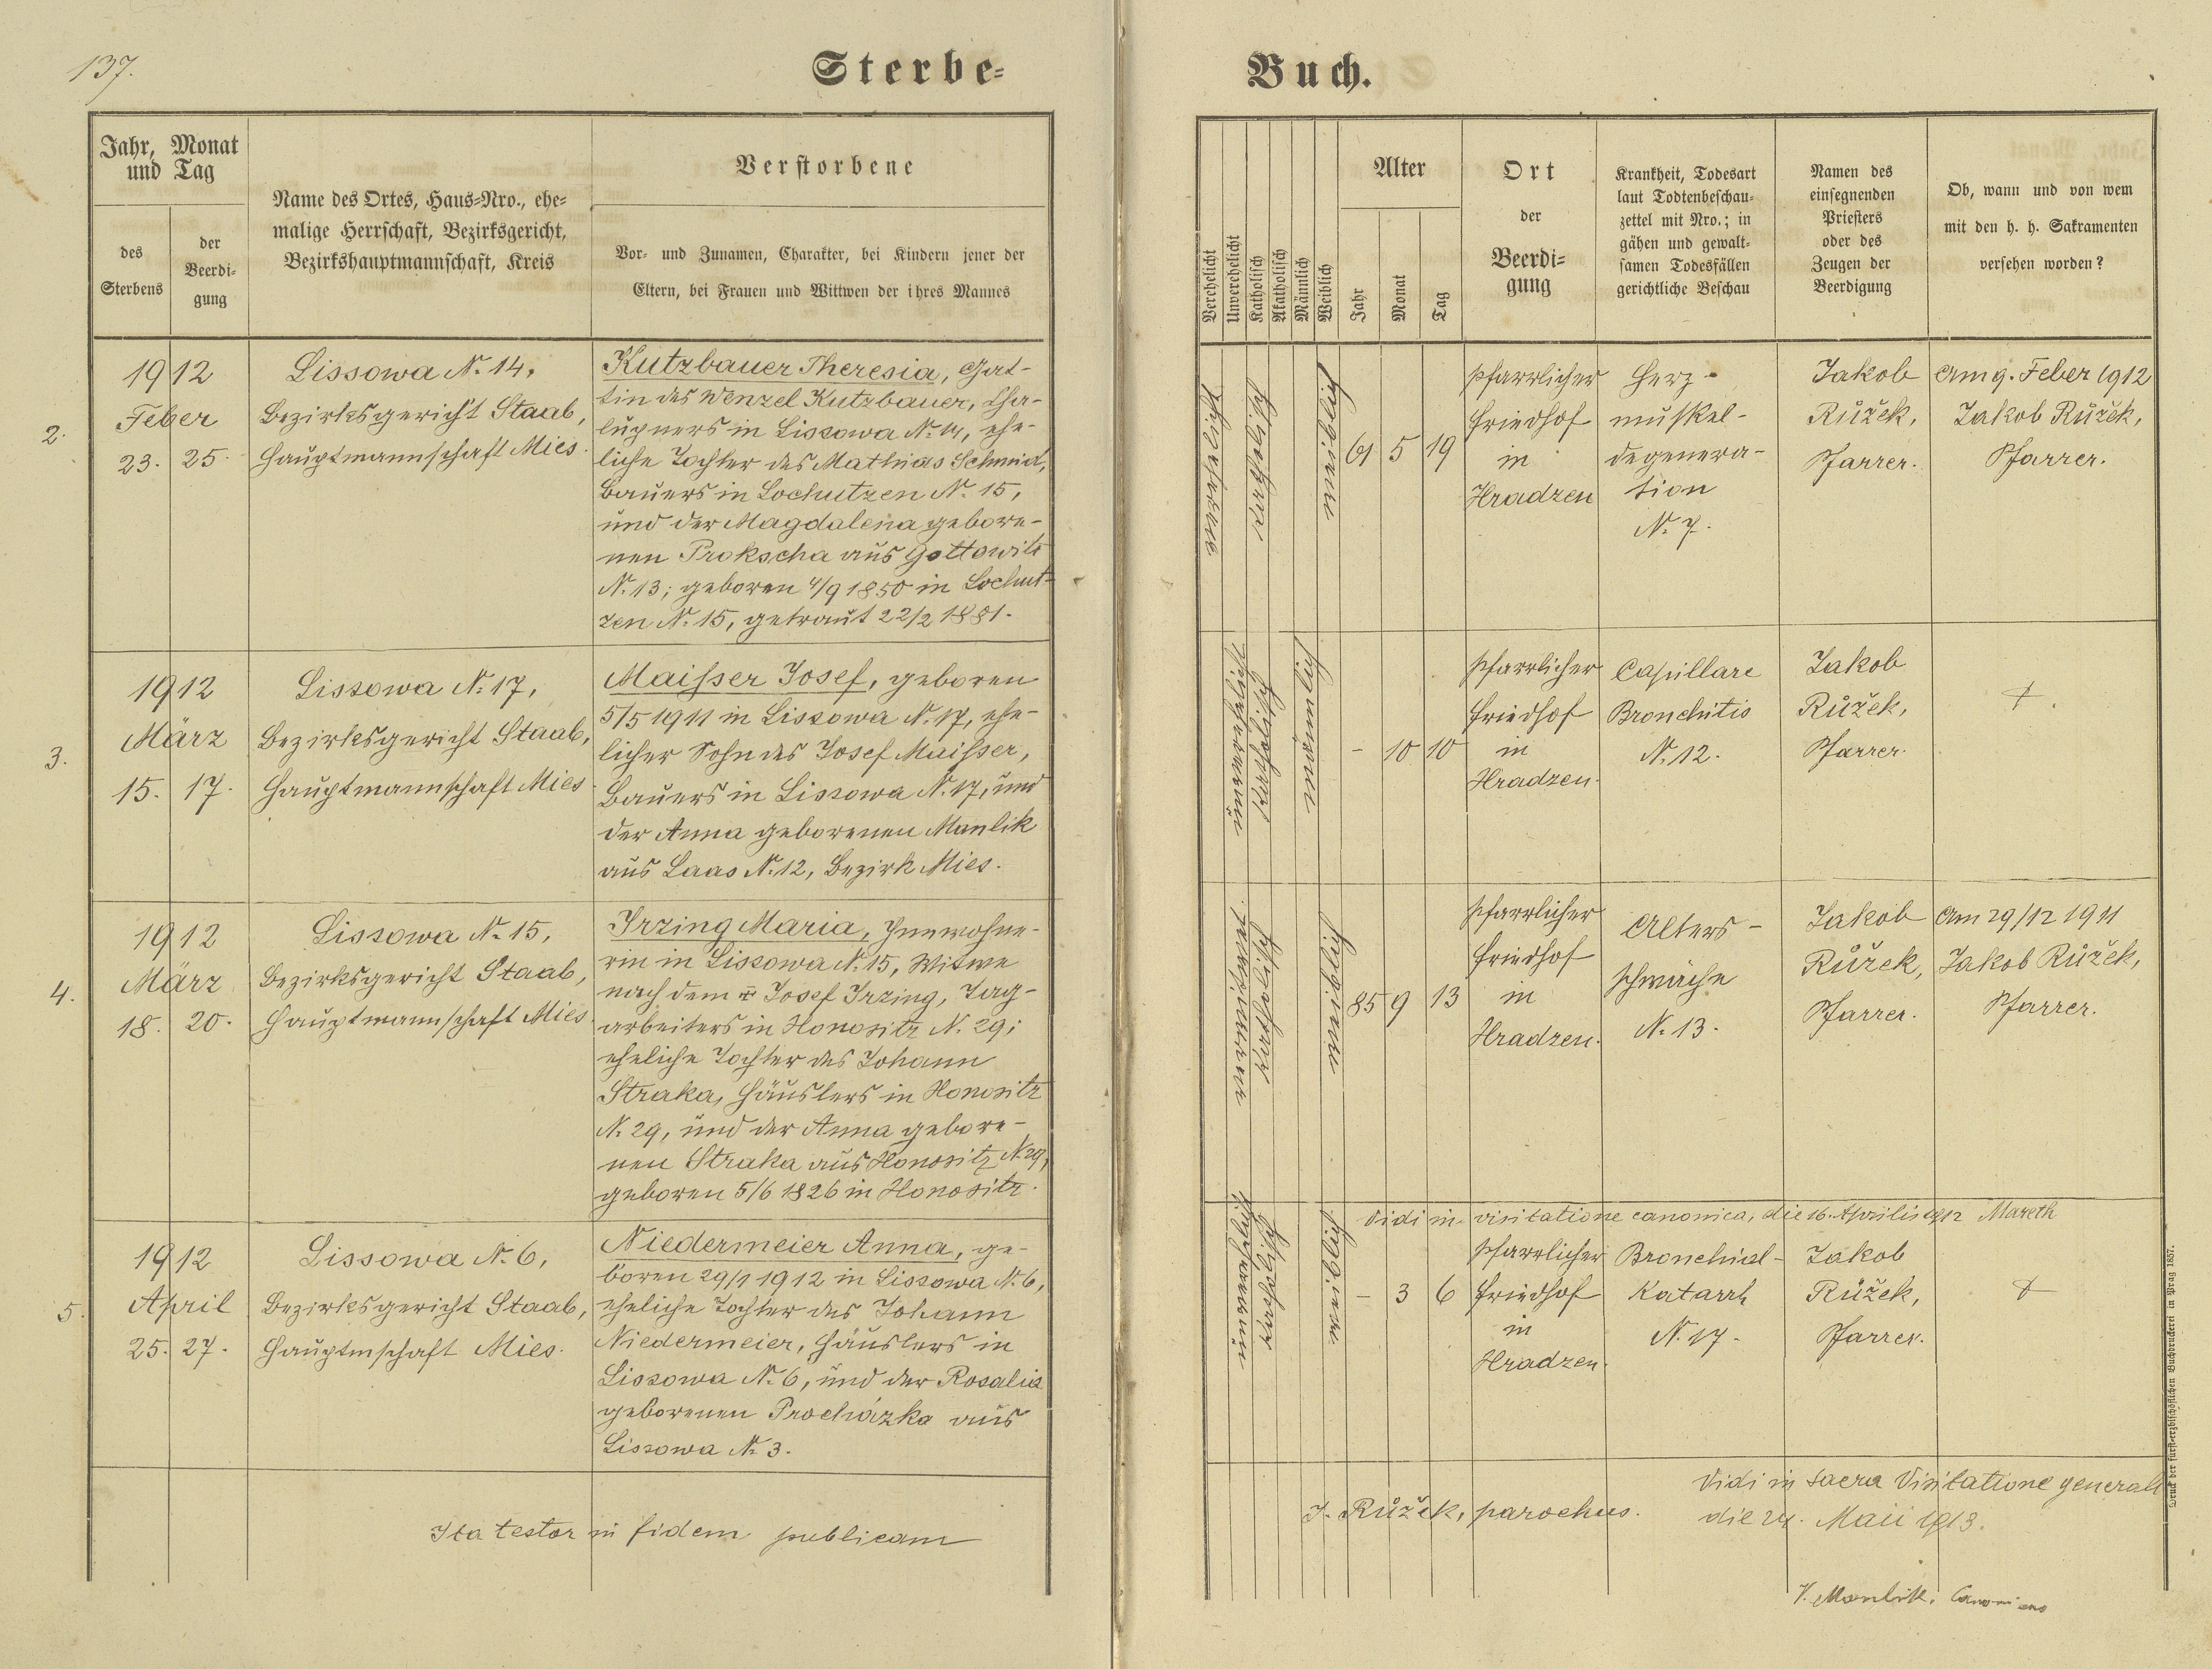 137.
Sterbe-
Jahr, Monat
und Tag
des
Sterbens
der
Beerdi-
gung
Name des Ortes, Haus-Nro., ehe-
malige Herrschaft, Bezirksgericht,
Bezirkshauptmannschaft, Kreis
Verstorbene
Vor- und Zunamen, Charakter, bei Kindern jener der
Eltern, bei Frauen und Wittwen der ihres Mannes
2.
1912
Feber
23. 25.
Lissowa N. 14,
Bezirksgericht Staab,
Hauptmannschaft Mies.
Kutzbauer Theresia, Gat-
tin des Wenzel Kutzbauer, Cha-
lupners in Lissowa N. 14, ehe-
liche Tochter des Mathias Schmid,
Bauers in Lochutzen N. 15,
und der Magdalena gebore-
nen Prokscha aus Gottowitz
N. 13; geboren 4/9 1850 in Lochut-
zen N. 15, getraut 22/2 1881.
3.
1912
März
15. 17.
Lissowa N. 17,
Bezirksgericht Staab,
Hauptmannschaft Mies.
Maisser Josef, geboren
5/5 1911 in Lissowa N. 17, ehe-
licher Sohn des Josef Maisser,
Bauers in Lissowa N. 17, und
der Anna geborenen Manlik
aus Laas N. 12, Bezirk Mies.
4.
1912
März
18. 20.
Lissowa N. 15,
Bezirksgericht Staab,
Hauptmannschaft Mies.
Irzing Maria, Inwohne-
rin in Lissowa N. 15, Witwe
nach dem ✝ Josef Irzing, Tag-
arbeiters in Honositz N. 29;
eheliche Tochter des Johann
Straka, Häuslers in Honositz
N. 29, und der Anna gebore-
nen Straka aus Honositz N. 29,
geboren 5/6 1826 in Honositz.
5.
1912
April
25. 27.
Lissowa N. 6,
Bezirksgericht Staab,
Hauptmschaft Mies.
Niedermeier Anna, ge-
boren 29/1 1912 in Lissowa N. 6,
eheliche Tochter des Johann
Niedermeier, Häuslers in
Lissowa N. 6, und der Rosalia
geborenen Procházka aus
Lissowa N. 3.
Ita testor in fidem publicam
Buch.
Verehelicht
Unverehelicht
Katholisch
Akatholisch
Männlich
Weiblich
Alter
Jahr
Monat
Tag
Ort
der
Beerdi-
gung
Krankheit, Todesart
laut Todtenbeschau-
zettel mit Nro.; in
gähen und gewalt-
samen Todesfällen
gerichtliche Beschau
Namen des
einsegnenden
Priesters
oder des
Zeugen der
Beerdigung
Ob, wann und von wem
mit den h. h. Sakramenten
versehen worden?
verehelicht
katholisch
weiblich
61 5 19
Pfarrlicher
Friedhof
in
Hradzen
Herz-
muskel-
degenera-
tion
N. 7.
Jakob
Růžek,
Pfarrer.
Am 9. Feber 1912
Jakob Růžek,
Pfarrer.
unverehelicht
katholisch
männlich
- 10 10
Pfarrlicher
Friedhof
in
Hradzen.
Capillare
Bronchitis
N. 12.
Jakob
Růžek,
Pfarrer.
verwitwet
katholisch
weiblich
85 9 13
Pfarrlicher
Friedhof
in
Hradzen.
Alters-
schwäche
N. 13.
Jakob
Růžek,
Pfarrer.
Am 29/12 1911
Jakob Růžek,
Pfarrer.
Vidi in visitatione canonica, die 16. Aprilis 1912 Mareth
unverehelicht
katholisch
weiblich
- 3 6
Pfarrlicher
Friedhof
in
Hradzen.
Bronchial-
Katarrh
N. 17.
Jakob
Růžek,
Pfarrer.
J. Růžek, parochus.
Vidi in sacra Visitatione generali
die 24. Maii 1913.
Manlik, Canonicus
Druck der fürst-erzbischöflichen Buchdruckerei in Prag 1857.